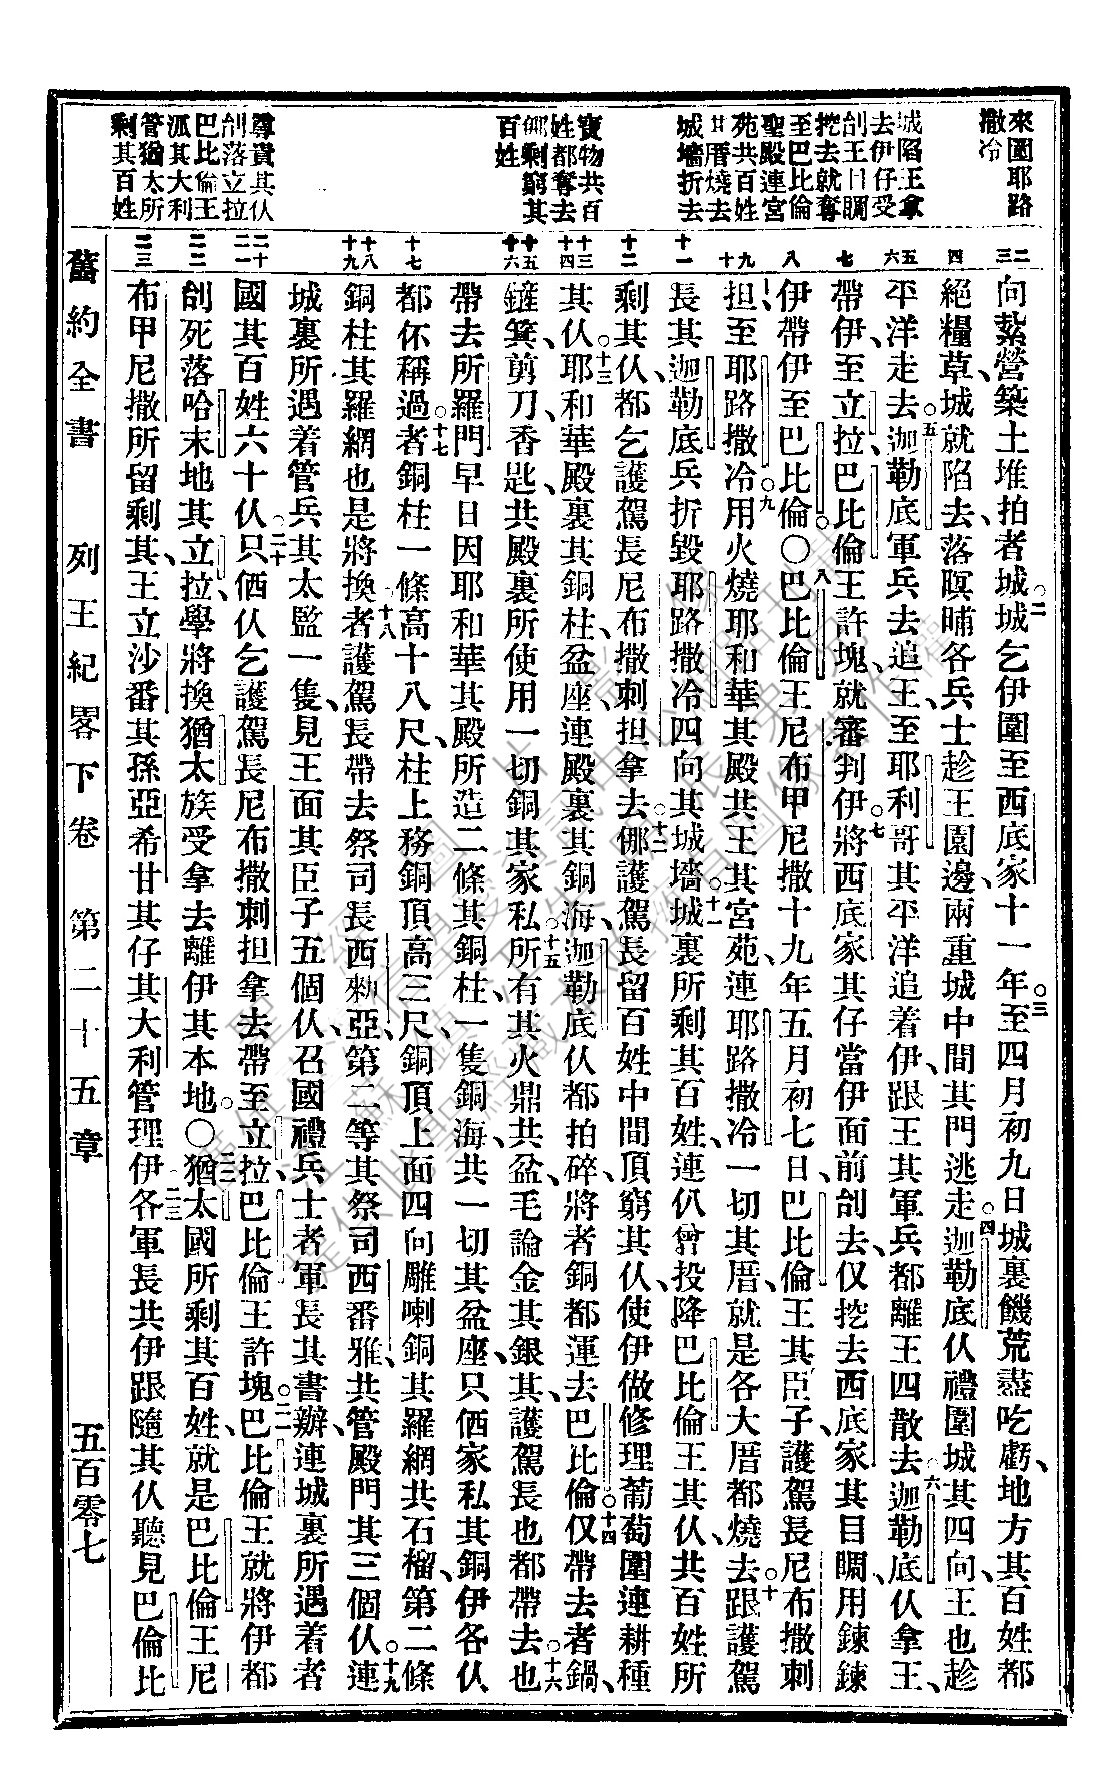 來圍耶路
撒冷
城陷王拿
去伊仔受
刣王目睭
挖去就奪
至巴比倫
聖殿連宮
苑共百姓
廿厝燒去
城墻折去
寶物共百
姓都奪去
𠆧剩窮其
百姓
尊貴其伙
刣落立拉
巴比倫王
派其大利
管猶太所
剩其百姓
二
三
四
五
六
七
八
九
十
十一
十二
十三
十四
十五
十六
十七
十八
十九
二十
二一
二二
二三
向紮營築土堆拍者城城乞伊圍至西底家十一年至四月初九日城裏饑荒盡吃虧地方其百姓都
絕糧草城就陷去落暝晡各兵士趁王園邊兩重城中間其門逃走迦勒底仈禮圍城其四向王也趁
平洋走去迦勒底軍兵去追王至耶利哥其平洋追着伊跟王其軍兵都離王四散去迦勒底仈拿王
帶伊至立拉巴比倫王許塊就審判伊將西底家其仔當伊面前刣去仅挖去西底家其目睭用鍊鍊
伊帶伊至巴比倫〇巴比倫王尼布甲尼撒十九年五月初七日巴比倫王其臣子護駕長尼布撒刺
担至耶路撒冷用火燒耶和華其殿共王其宮苑連耶路撒冷一切其厝就是各大厝都燒去跟護駕
長其迦勒底兵折毀耶路撒冷四向其城墻城裏所剩其百姓連仈曾投降巴比倫王其仈共百姓所
剩其仈都乞護駕長尼布撒刺担拿去𠆧護駕長留百姓中間頂窮其仈使伊做修理葡萄園連耕種
其仈耶和華殿裏其銅柱盆座連殿裏其銅海迦勒底仈都拍碎將者銅都運去巴比倫仅帶去者鍋
鏟箕剪刀香匙共殿裏所使用一切銅其家私所有其火鼎共盆毛論金其銀其護駕長也都帶去也
帶去所羅門早日因耶和華其殿所造二條其銅柱一隻銅海共一切其盆座只佰家私其銅伊各仈
都伓稱過者銅柱一條高十八尺柱上務銅頂高三尺銅頂上面四向雕喇銅其羅網共石榴第二條
銅柱其羅網也是將換者護駕長帶去祭司長西勑亞第二等其祭司西番雅共管殿門其三個仈連
城裏所遇着管兵其太監一隻見王面其臣子五個仈召國禮兵士者軍長其書辦連城裏所遇着者
國其百姓六十仈只佰仈乞護駕長尼布撒刺担拿去帶至立拉巴比倫王許塊巴比倫王就將伊都
刣死落哈末地其立拉學將換猶太族受拿去離伊其本地〇猶太國所剩其百姓就是巴比倫王尼
布甲尼撒所留剩其王立沙番其孫亞希甘其仔其大利管理伊各軍長共伊跟隨其仈聽見巴倫比
舊約全書　列王紀畧下卷　第二十五章　五百零七